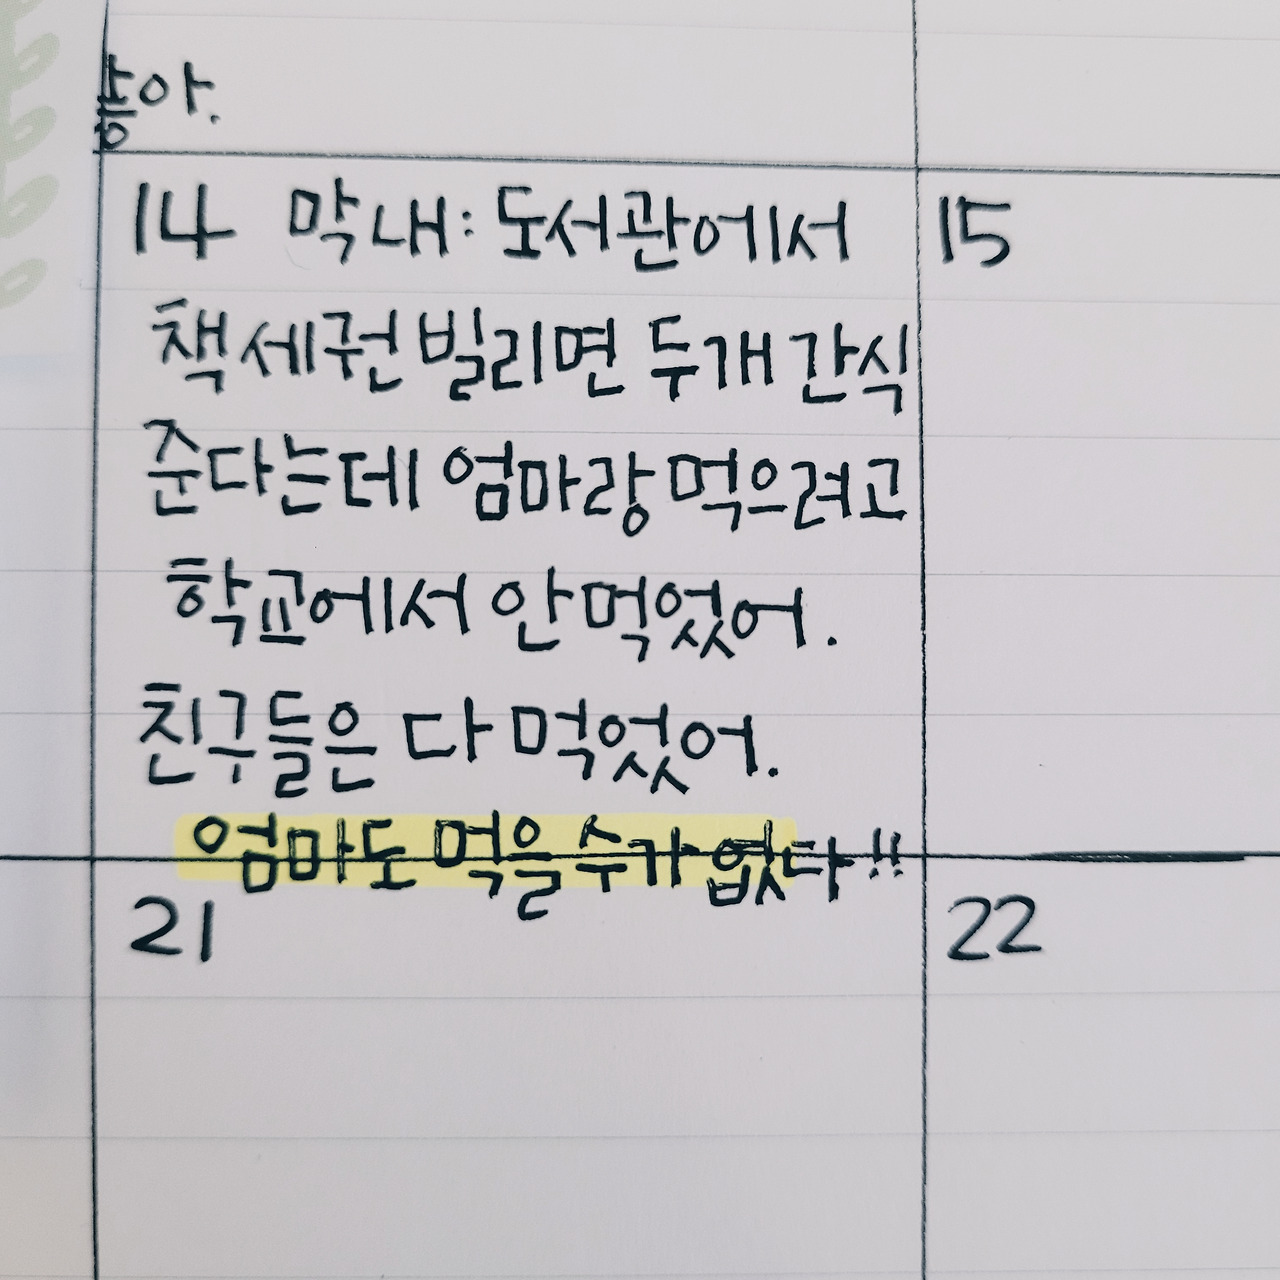 좋아.
14 막내: 도서관에서 15
책 세권 빌리면 두개 간식
준다는데 엄마랑 먹으려고
학교에서 안 먹었어.
친구들은 다 먹었어.
엄마도 먹을 수가 없다!!
21 22